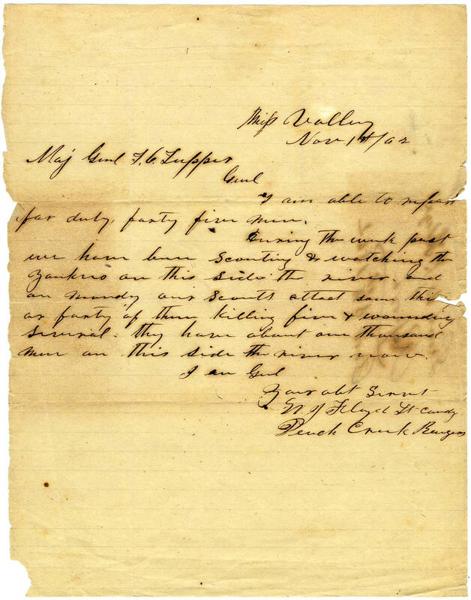 Miss Valley
Nov 1st/62
Maj Genl T. C Tupper
Genl
I am able to report
for duty, forty five men.
During the week past
we have been Scouting & watching the
Yankees on this side the river, and
on monday our Scouts attact some thir
or forty of them killing five & wounding
several. they have about one thousand
men on this side the river now.
I am Genl
Your obt Servt
W J Floyd Lt Comdg
Peach Creek Rangers